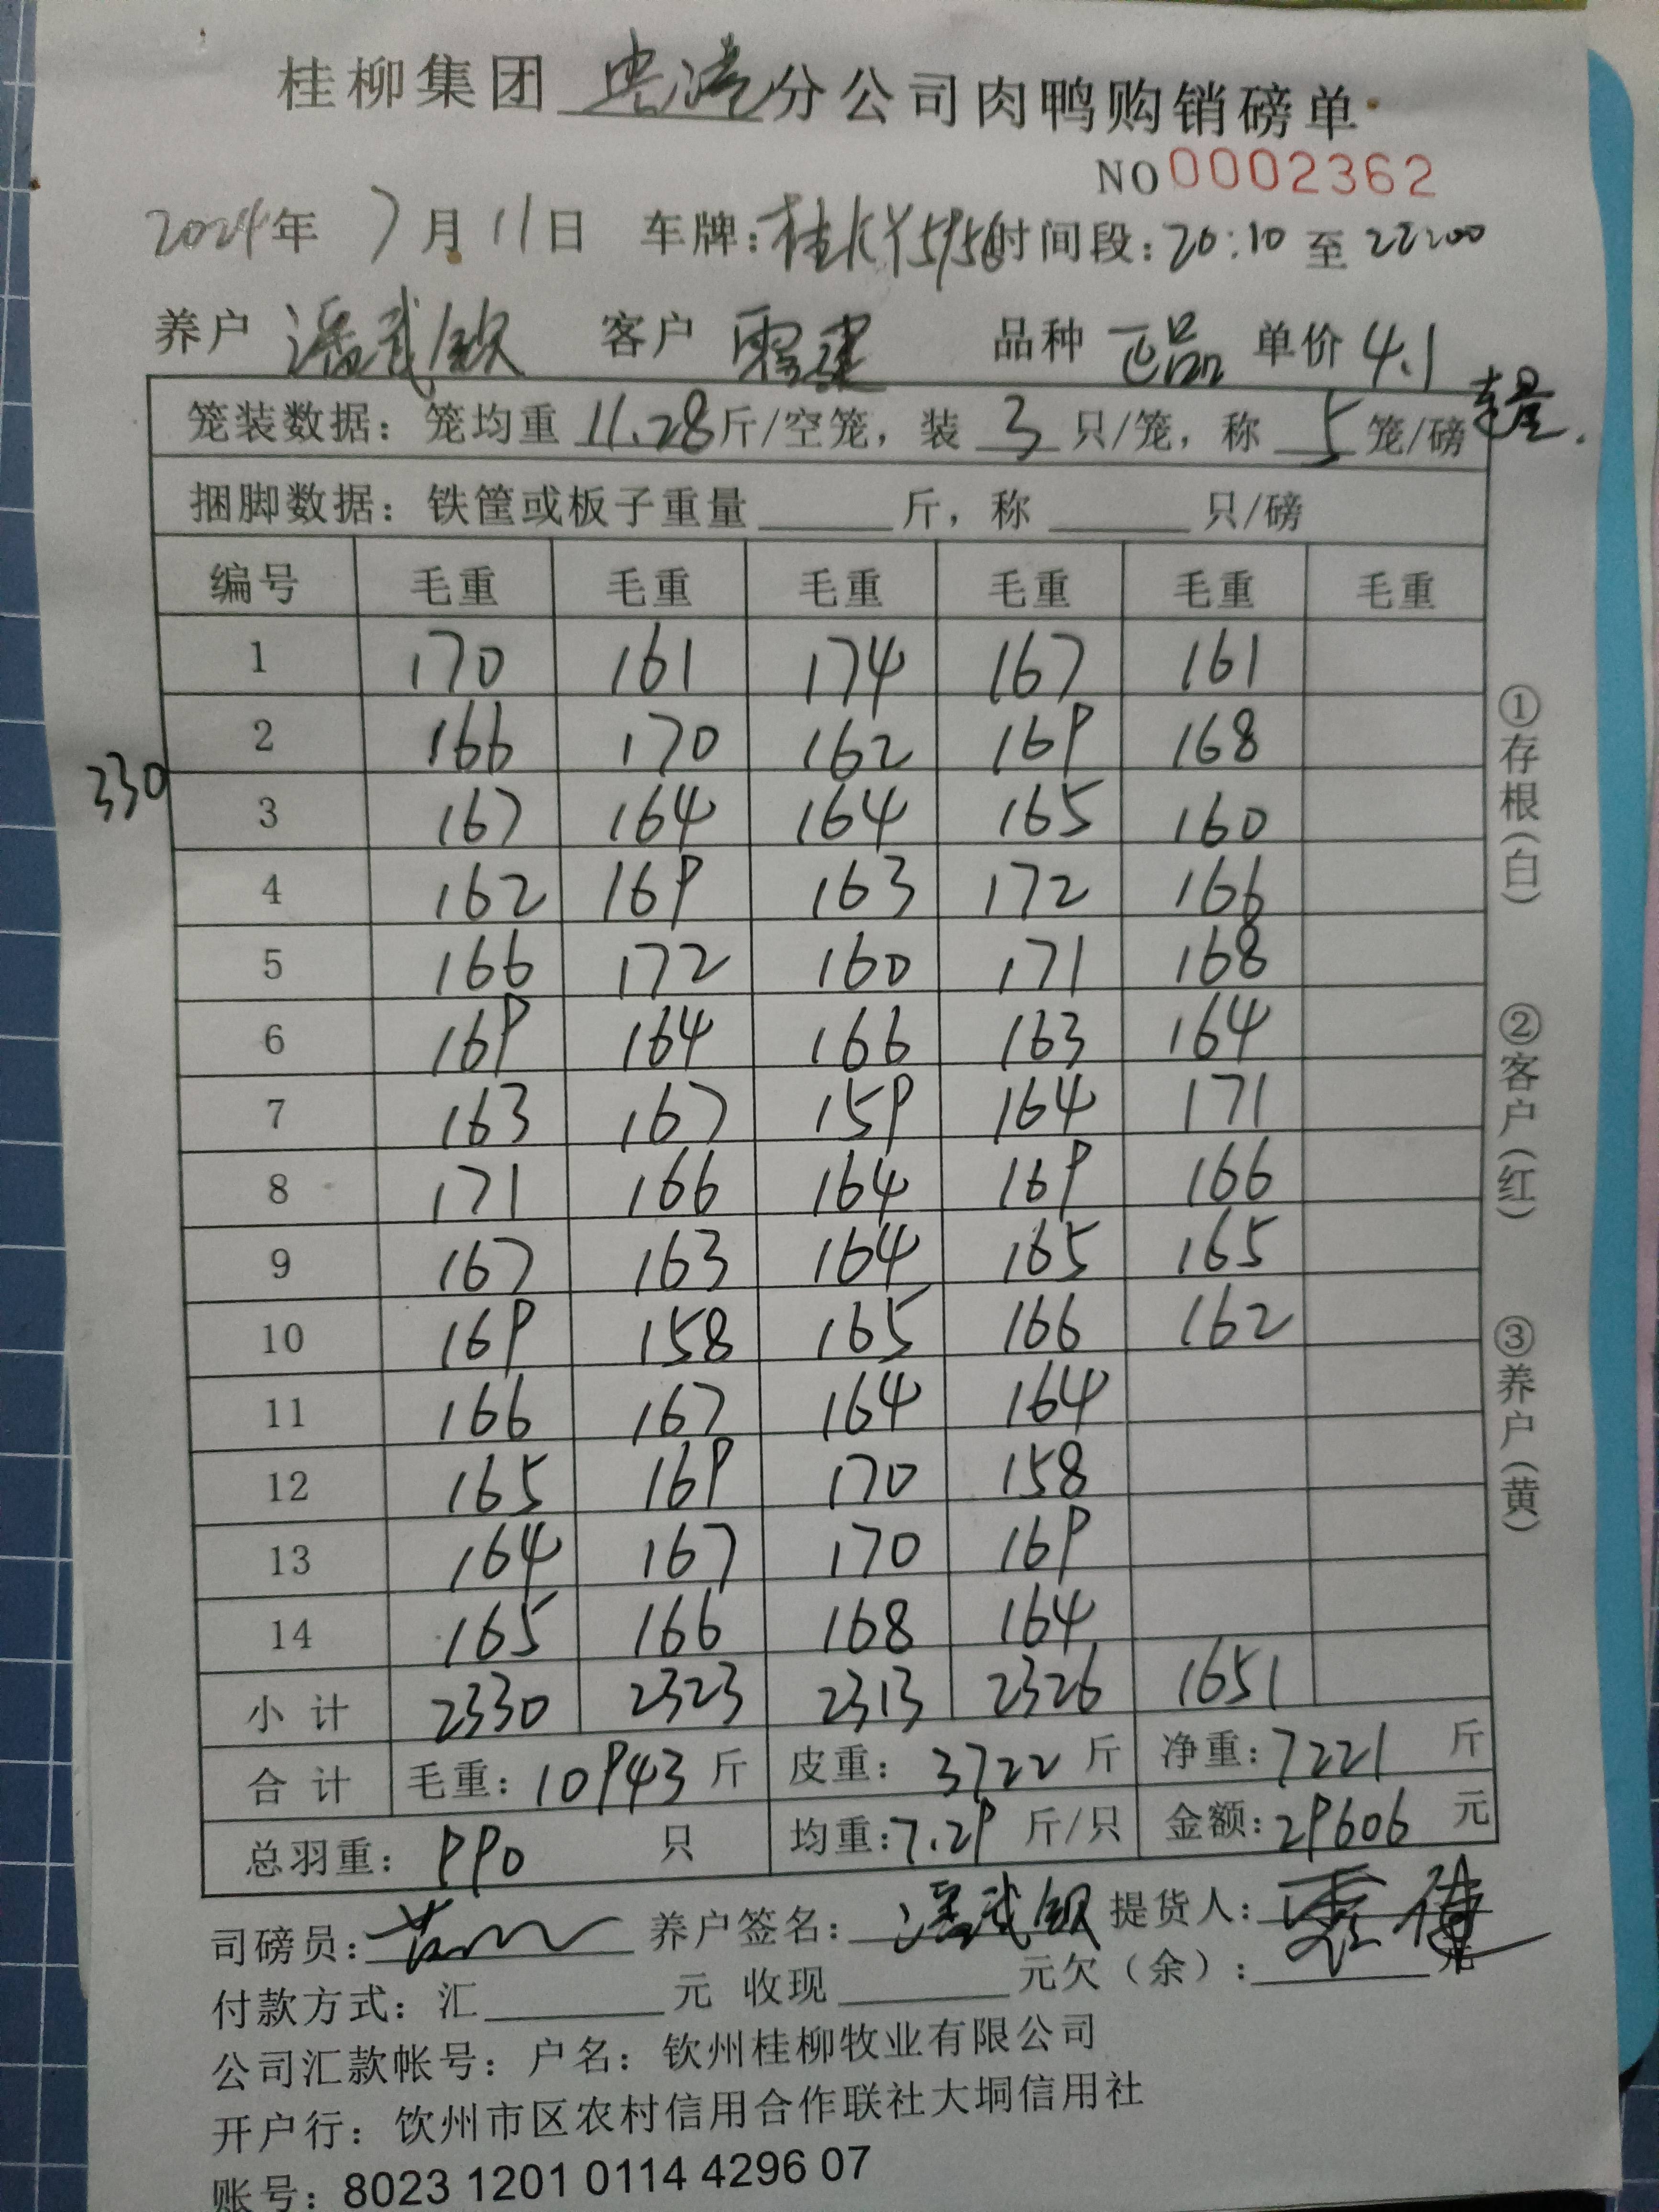 桂柳集团 分公司肉鸭购销磅单
NO 0002362
2024年 7月 11日 车牌:桂KY5956 时间段:20:10 至 22:00
养户 潘武钦 客户 品种 正品 单价 4.1
笼装数据: 笼均重 11.28 斤/空笼, 装 3 只/笼, 称 5 笼/磅
捆脚数据: 铁筐或板子重量 ______ 斤, 称 ______ 只/磅
编号 毛重 毛重 毛重 毛重 毛重 毛重
1 170 161 174 167 161
2 166 170 162 169 168
330
3 167 164 164 165 160
4 162 169 163 172 166
5 166 172 160 171 168
6 169 164 166 163 164
7 163 167 159 164 171
8 171 166 164 169 166
9 167 163 164 165 165
10 169 158 165 166 162
11 166 167 164 164
12 165 169 170 158
13 164 167 170 169
14 165 166 168 164
小计 2330 2323 2313 2326 1651
合计 毛重: 10943 斤 皮重: 3722 斤 净重: 7221 斤
总羽重: 990 只 均重: 7.29 斤/只 金额: 29606 元
司磅员: 养户签名: 潘武钦 提货人:
付款方式: 汇______元 收现______元欠(余):______元
公司汇款帐号: 户名: 钦州桂柳牧业有限公司
开户行: 钦州市区农村信用合作联社大垌信用社
账号: 8023 1201 0114 4296 07
①存根(白)
②客户(红)
③养户(黄)